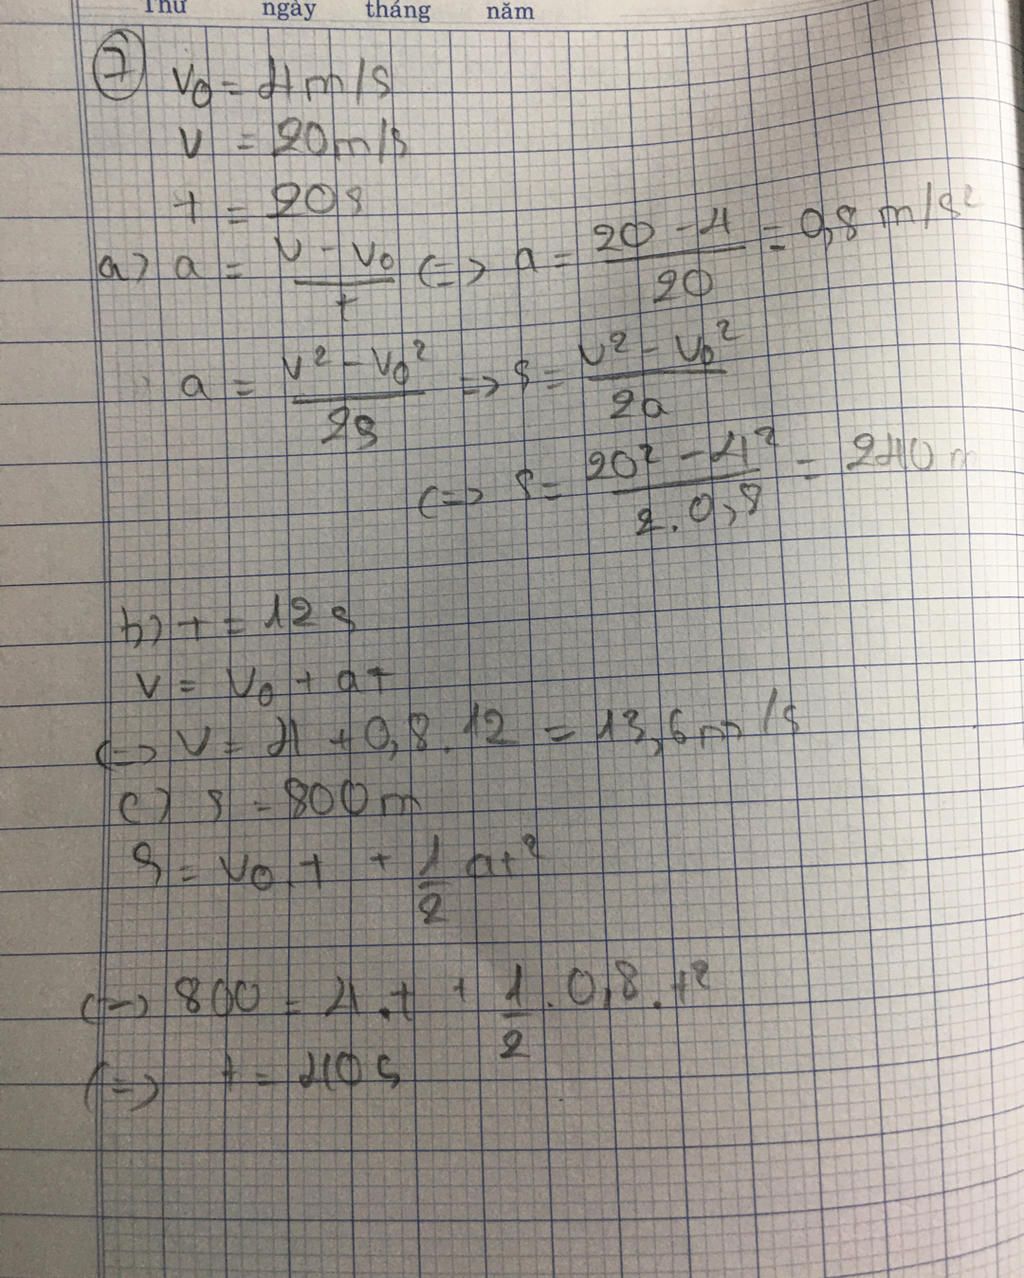 Thứ ngày tháng năm
7 v₀ = 4m/s
v = 20m/s
t = 20s
a) a = (v - v₀)/t (=) a = (20 - 4)/20 = 0,8 m/s²
a = (v² - v₀²)/2s => s = (v² - v₀²)/2a
(=) s = (20² - 4²)/(2.0,8) = 240 m
b) t = 12s
v = v₀ + at
(=) v = 4 + 0,8.12 = 13,6m/s
c) s = 800m
S = v₀.t + 1/2 at²
(=) 800 = 4.t + 1/2 . 0,8.t²
(=) t = 40s